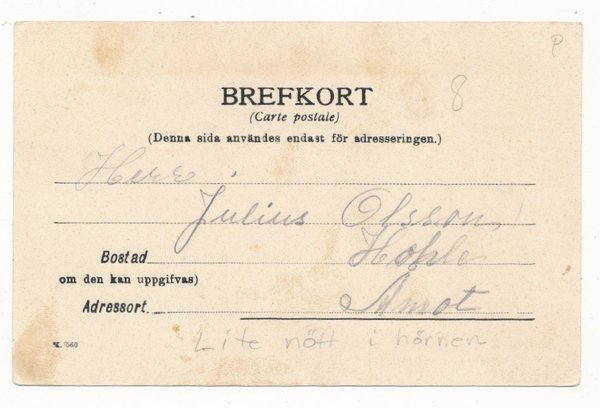 P
8
BREFKORT
(Carte postale)
(Denna sida användes endast för adresseringen.)
Herr
Julius Olsson
Bostad
om den kan uppgifvas)
Adressort. Åmot
Lite nött i hörnen